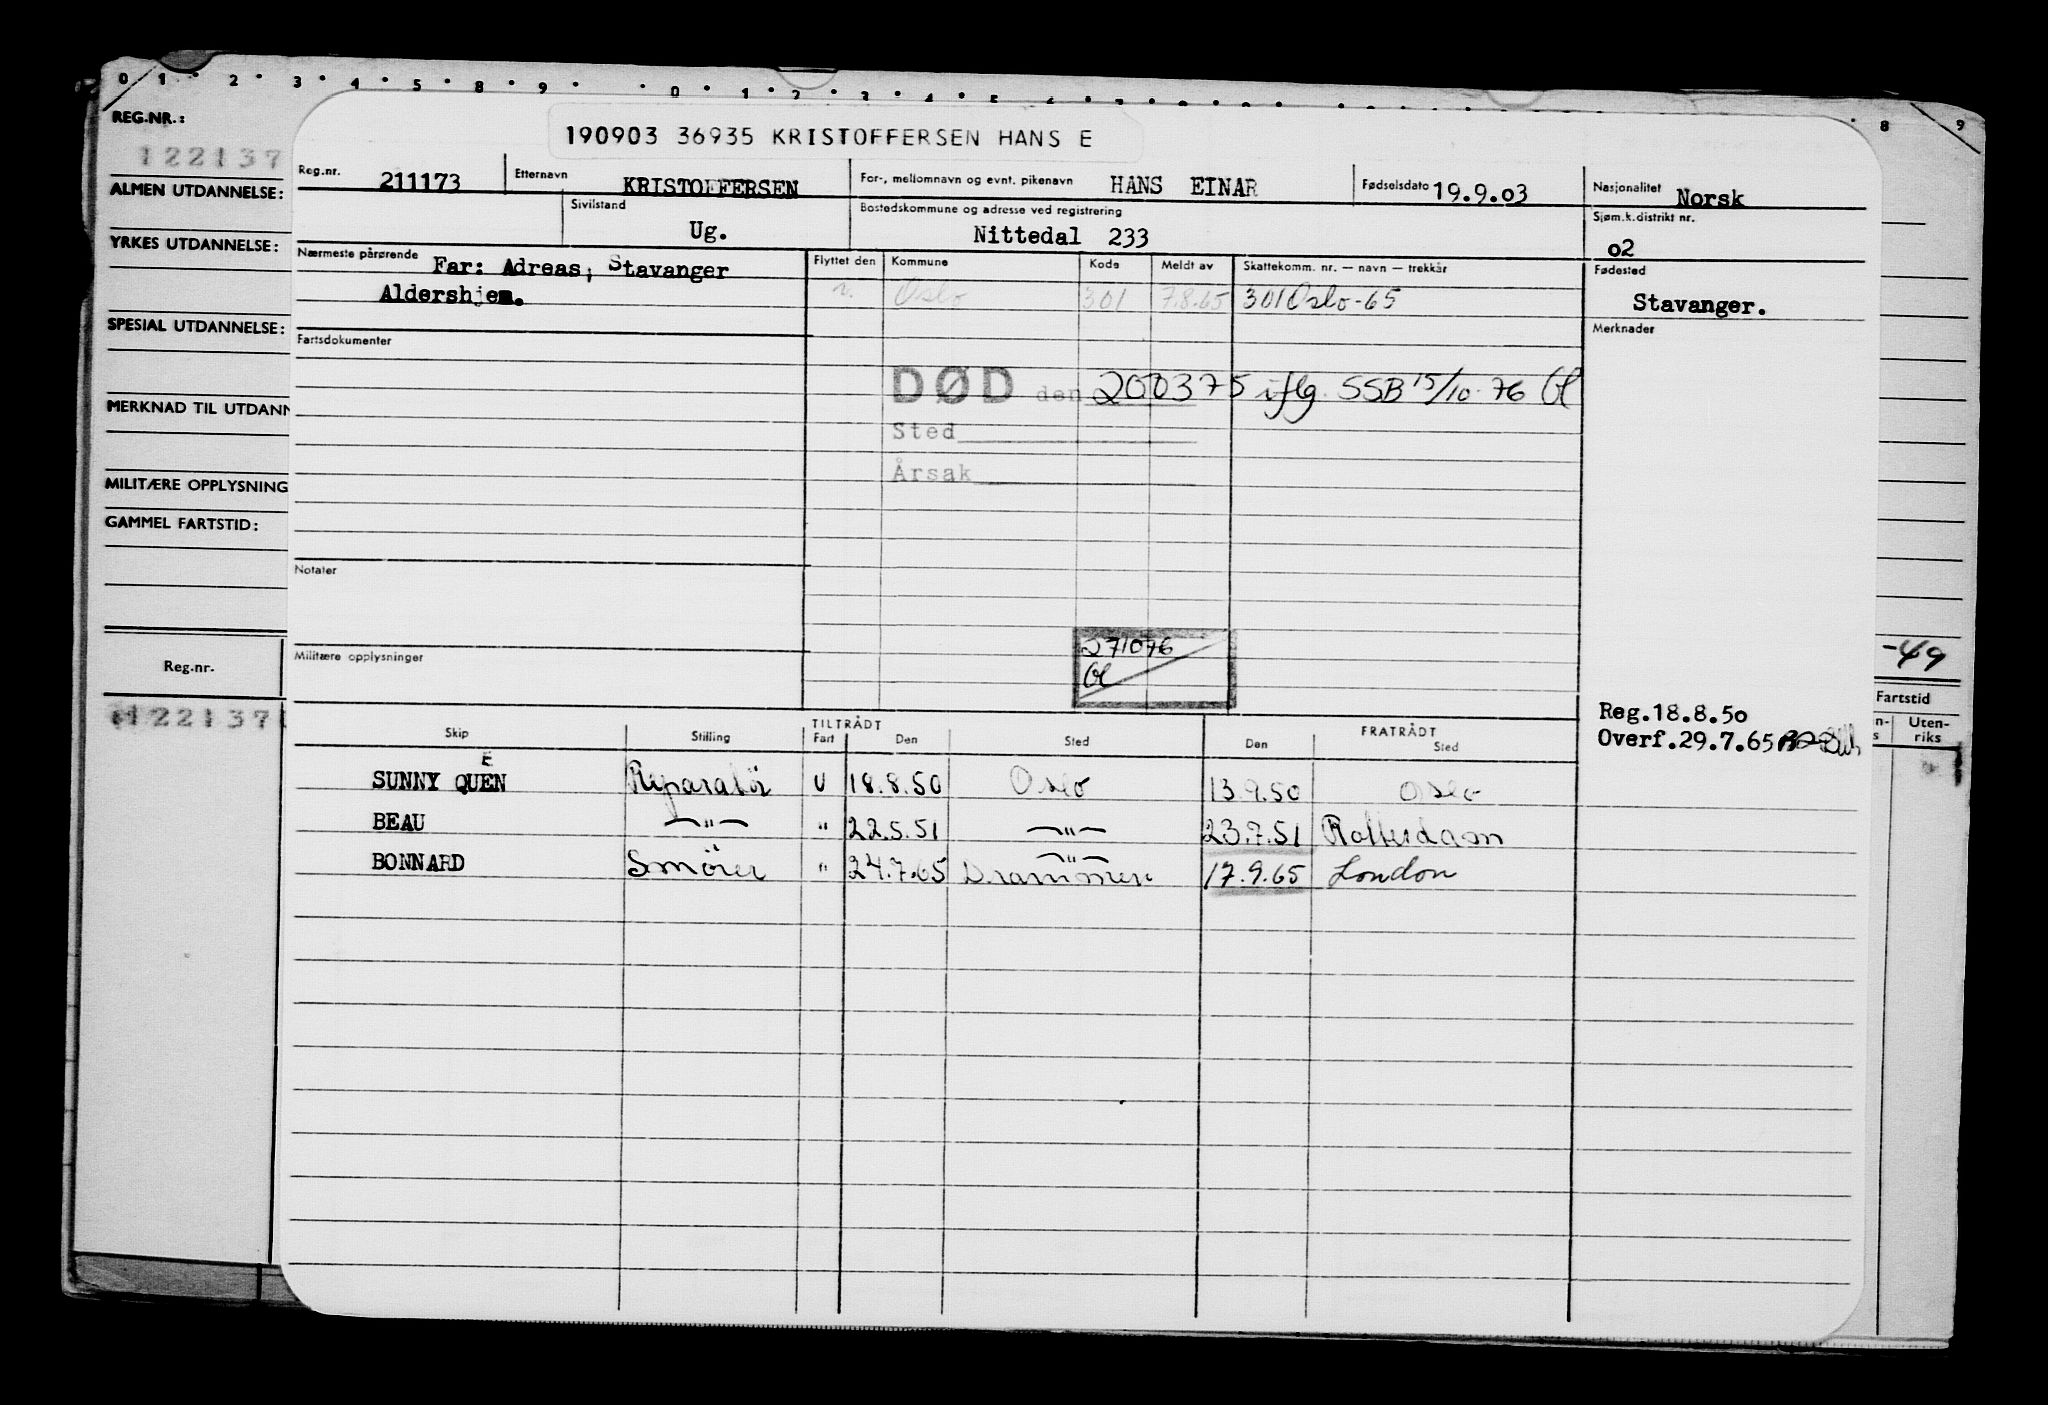 0 1 2 3 4 5 8 9 0 1 2 3 4 5 8 9
REG.NR.:
122137
ALMEN UTDANNELSE:
YRKES UTDANNELSE:
SPESIAL UTDANNELSE:
MERKNAD TIL UTDANN
MILITÆRE OPPLYSNING
GAMMEL FARTSTID:
Reg.nr.
122137
190903 36935 KRISTOFFERSEN HANS E
Reg.nr. 211173 Etternavn KRISTOFFERSEN For-, mellomnavn og evnt. pikenavn HANS EINAR Fødselsdato 19.9.03 Nasjonalitet Norsk
Sivilstand Ug. Bostedskommune og adresse ved registrering Nittedal 233 Sjøm.k.distrikt nr. 02
Nærmeste pårørende Far: Adreas, Stavanger
Aldershjem.
Flyttet den Kommune Kode Meldt av Skattekomm. nr. — navn — trekkår
Oslo 301 7.8.65 301 Oslo-65
Fødested
Stavanger.
Merknader
Fartsdokumenter
DØD den 200375 iflg. SSB 15/10-76
Sted
Årsak
Notater
271076
Militære opplysninger
Reg.18.8.50
Overf.29.7.65
-49
Fartstid
Uten-
riks
TILTRÅDT FRATRÅDT
Skip Stilling Fart Den Sted Den Sted
E
SUNNY QUEN Reparatör U 18.8.50 Oslo 13.9.50 Oslo
BEAU —"— " 22.5.51 —"— 23.7.51 Rotterdam
BONNARD Smörer " 24.7.65 —"— Drammen 17.9.65 London